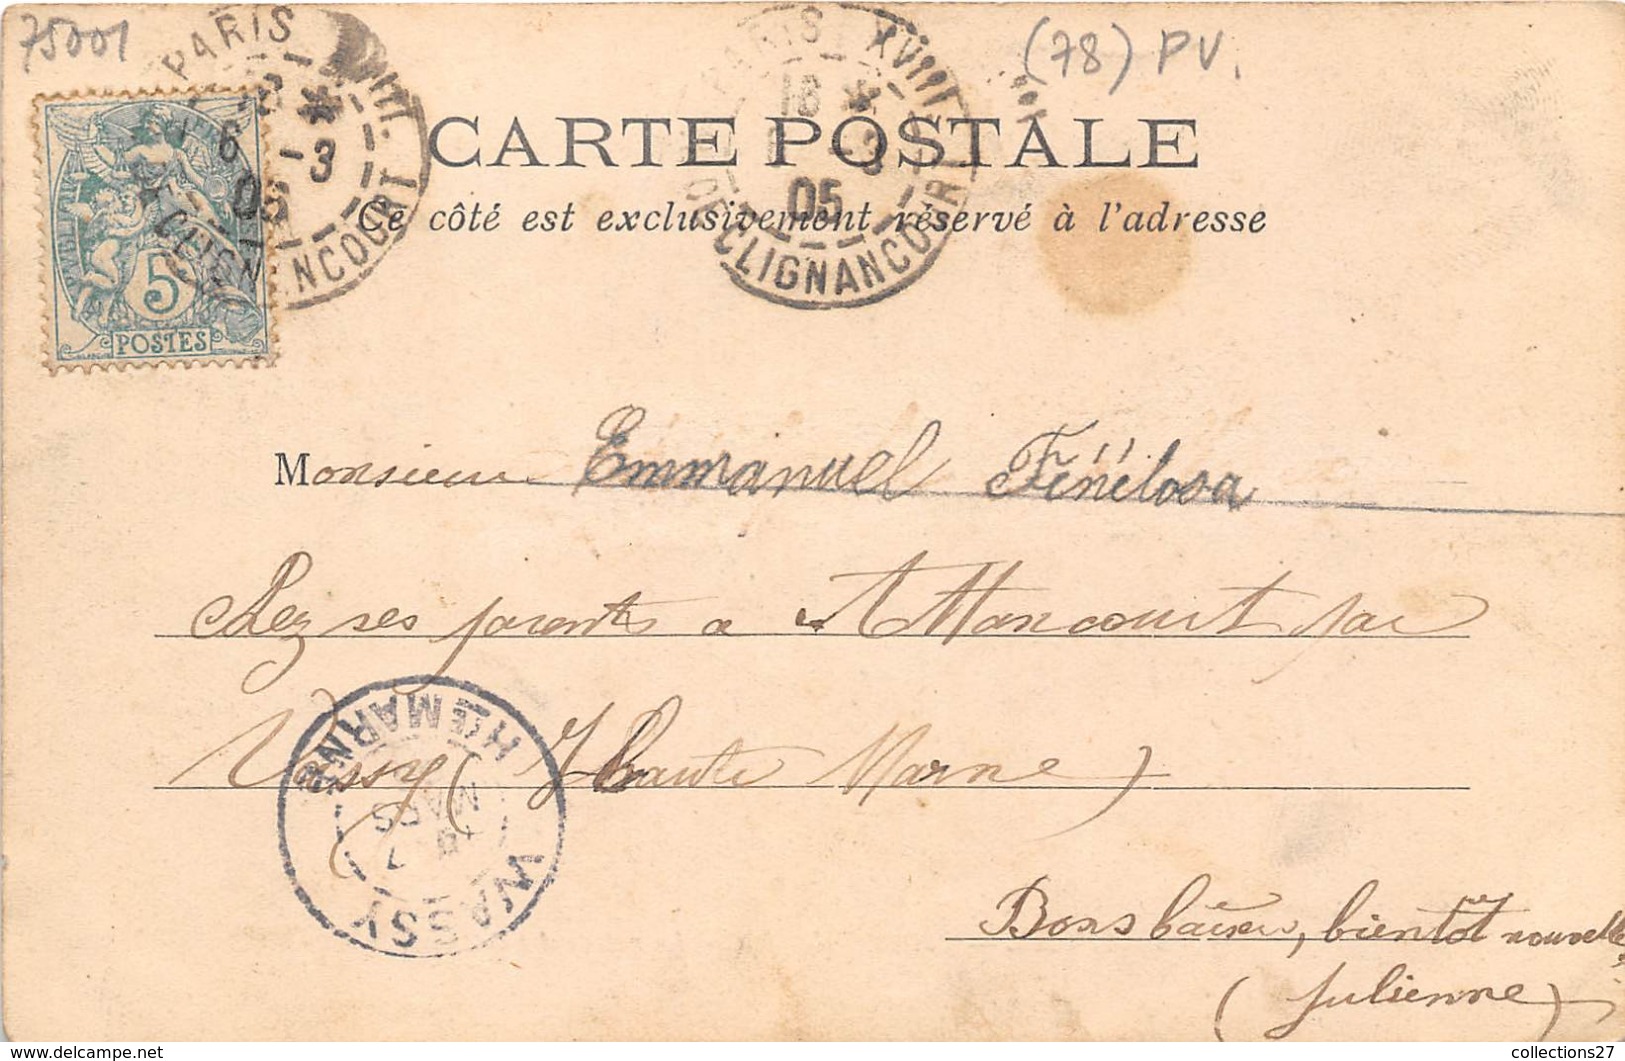 75001
(78) PV.
PARIS XVIII
18 *
6 -3
05
CLIGNANCOURT
PARIS XVIII
18 *
-3
05
DE CLIGNANCOURT
5
POSTES
CARTE POSTALE
Ce côté est exclusivement réservé à l'adresse
Monsieur Emmanuel Fénélosa
Chez ses parents a Attancourt par
Vassy (Haute Marne)
WASSY
7
MARS
HTE MARNE
Bons baisers, bientôt nouvelle
(Julienne)
collections27